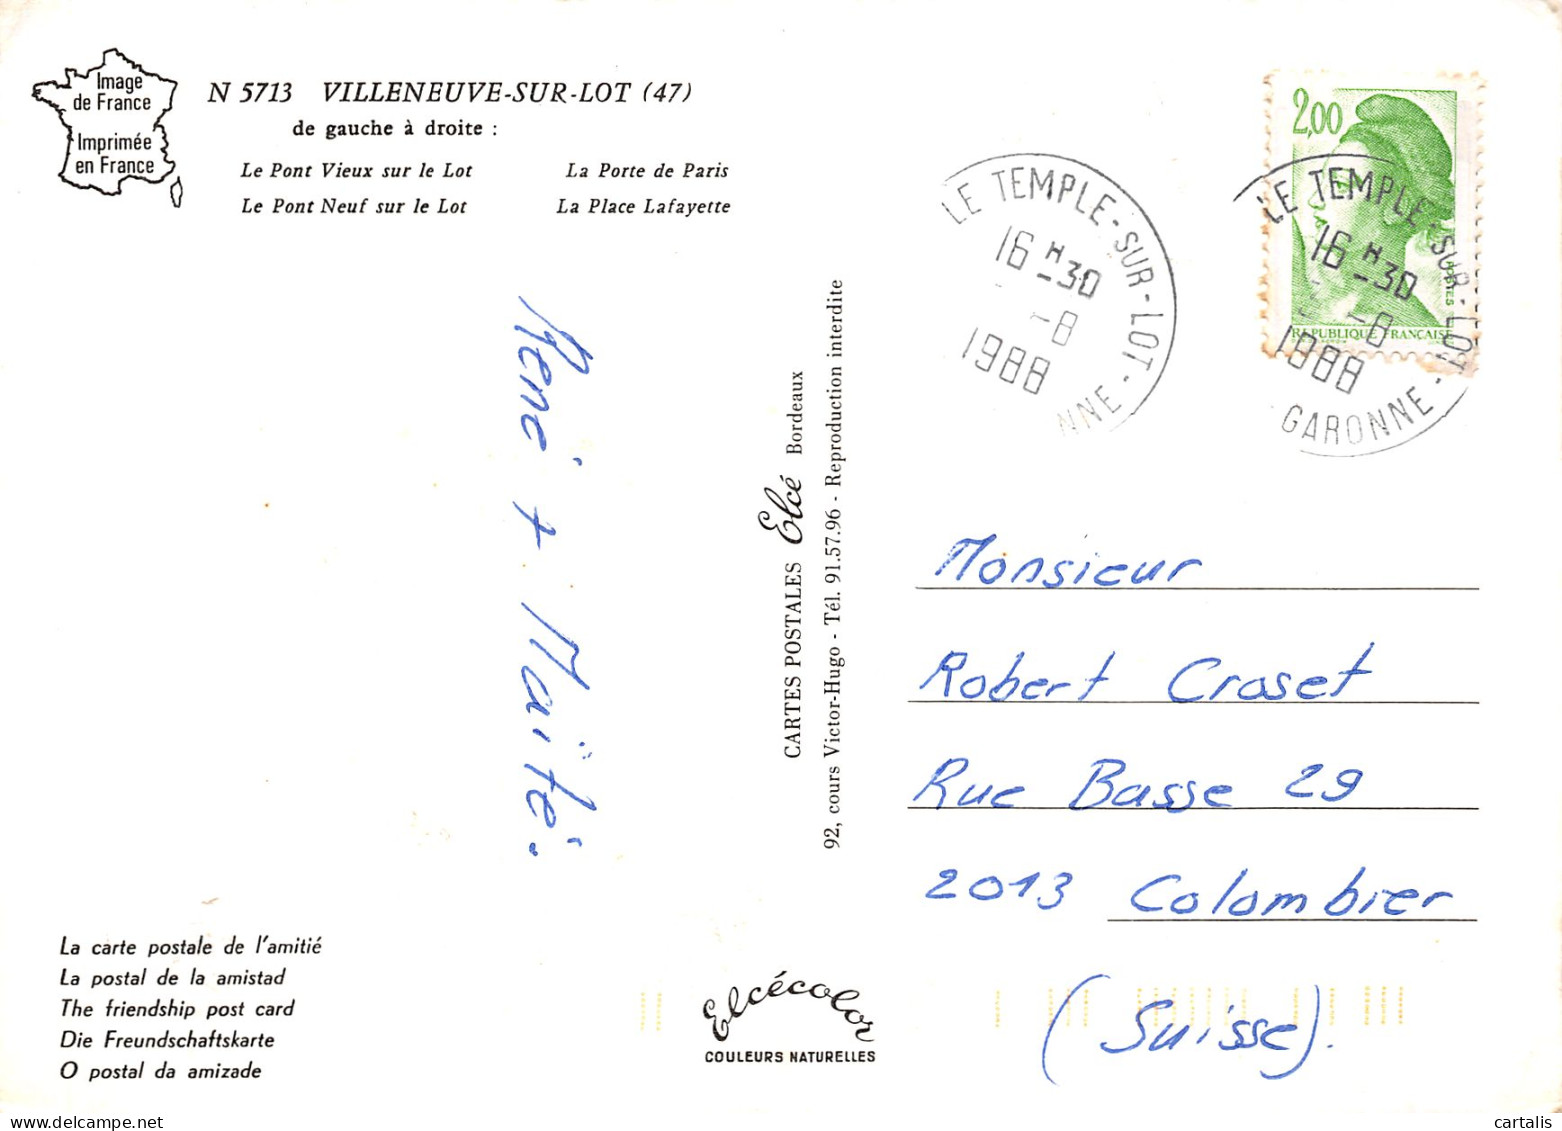 Image
de France
Imprimée
en France
N 5713 VILLENEUVE-SUR-LOT (47)
de gauche à droite :
Le Pont Vieux sur le Lot La Porte de Paris
Le Pont Neuf sur le Lot La Place Lafayette
René + Maïté.
CARTES POSTALES Elcé Bordeaux
92, cours Victor-Hugo - Tél. 91.57.96 - Reproduction interdite
LE TEMPLE-SUR-LOT-
16 H 30
-8
1988
NNE
2,00
POSTES
REPUBLIQUE FRANÇAISE
LE TEMPLE-SUR-LOT
16 H 30
-8
1988
GARONNE-
Monsieur
Robert Croset
Rue Basse 29
2013 Colombier
(Suisse).
La carte postale de l'amitié
La postal de la amistad
The friendship post card
Die Freundschaftskarte
O postal da amizade
Elcécolor
COULEURS NATURELLES
cartalis